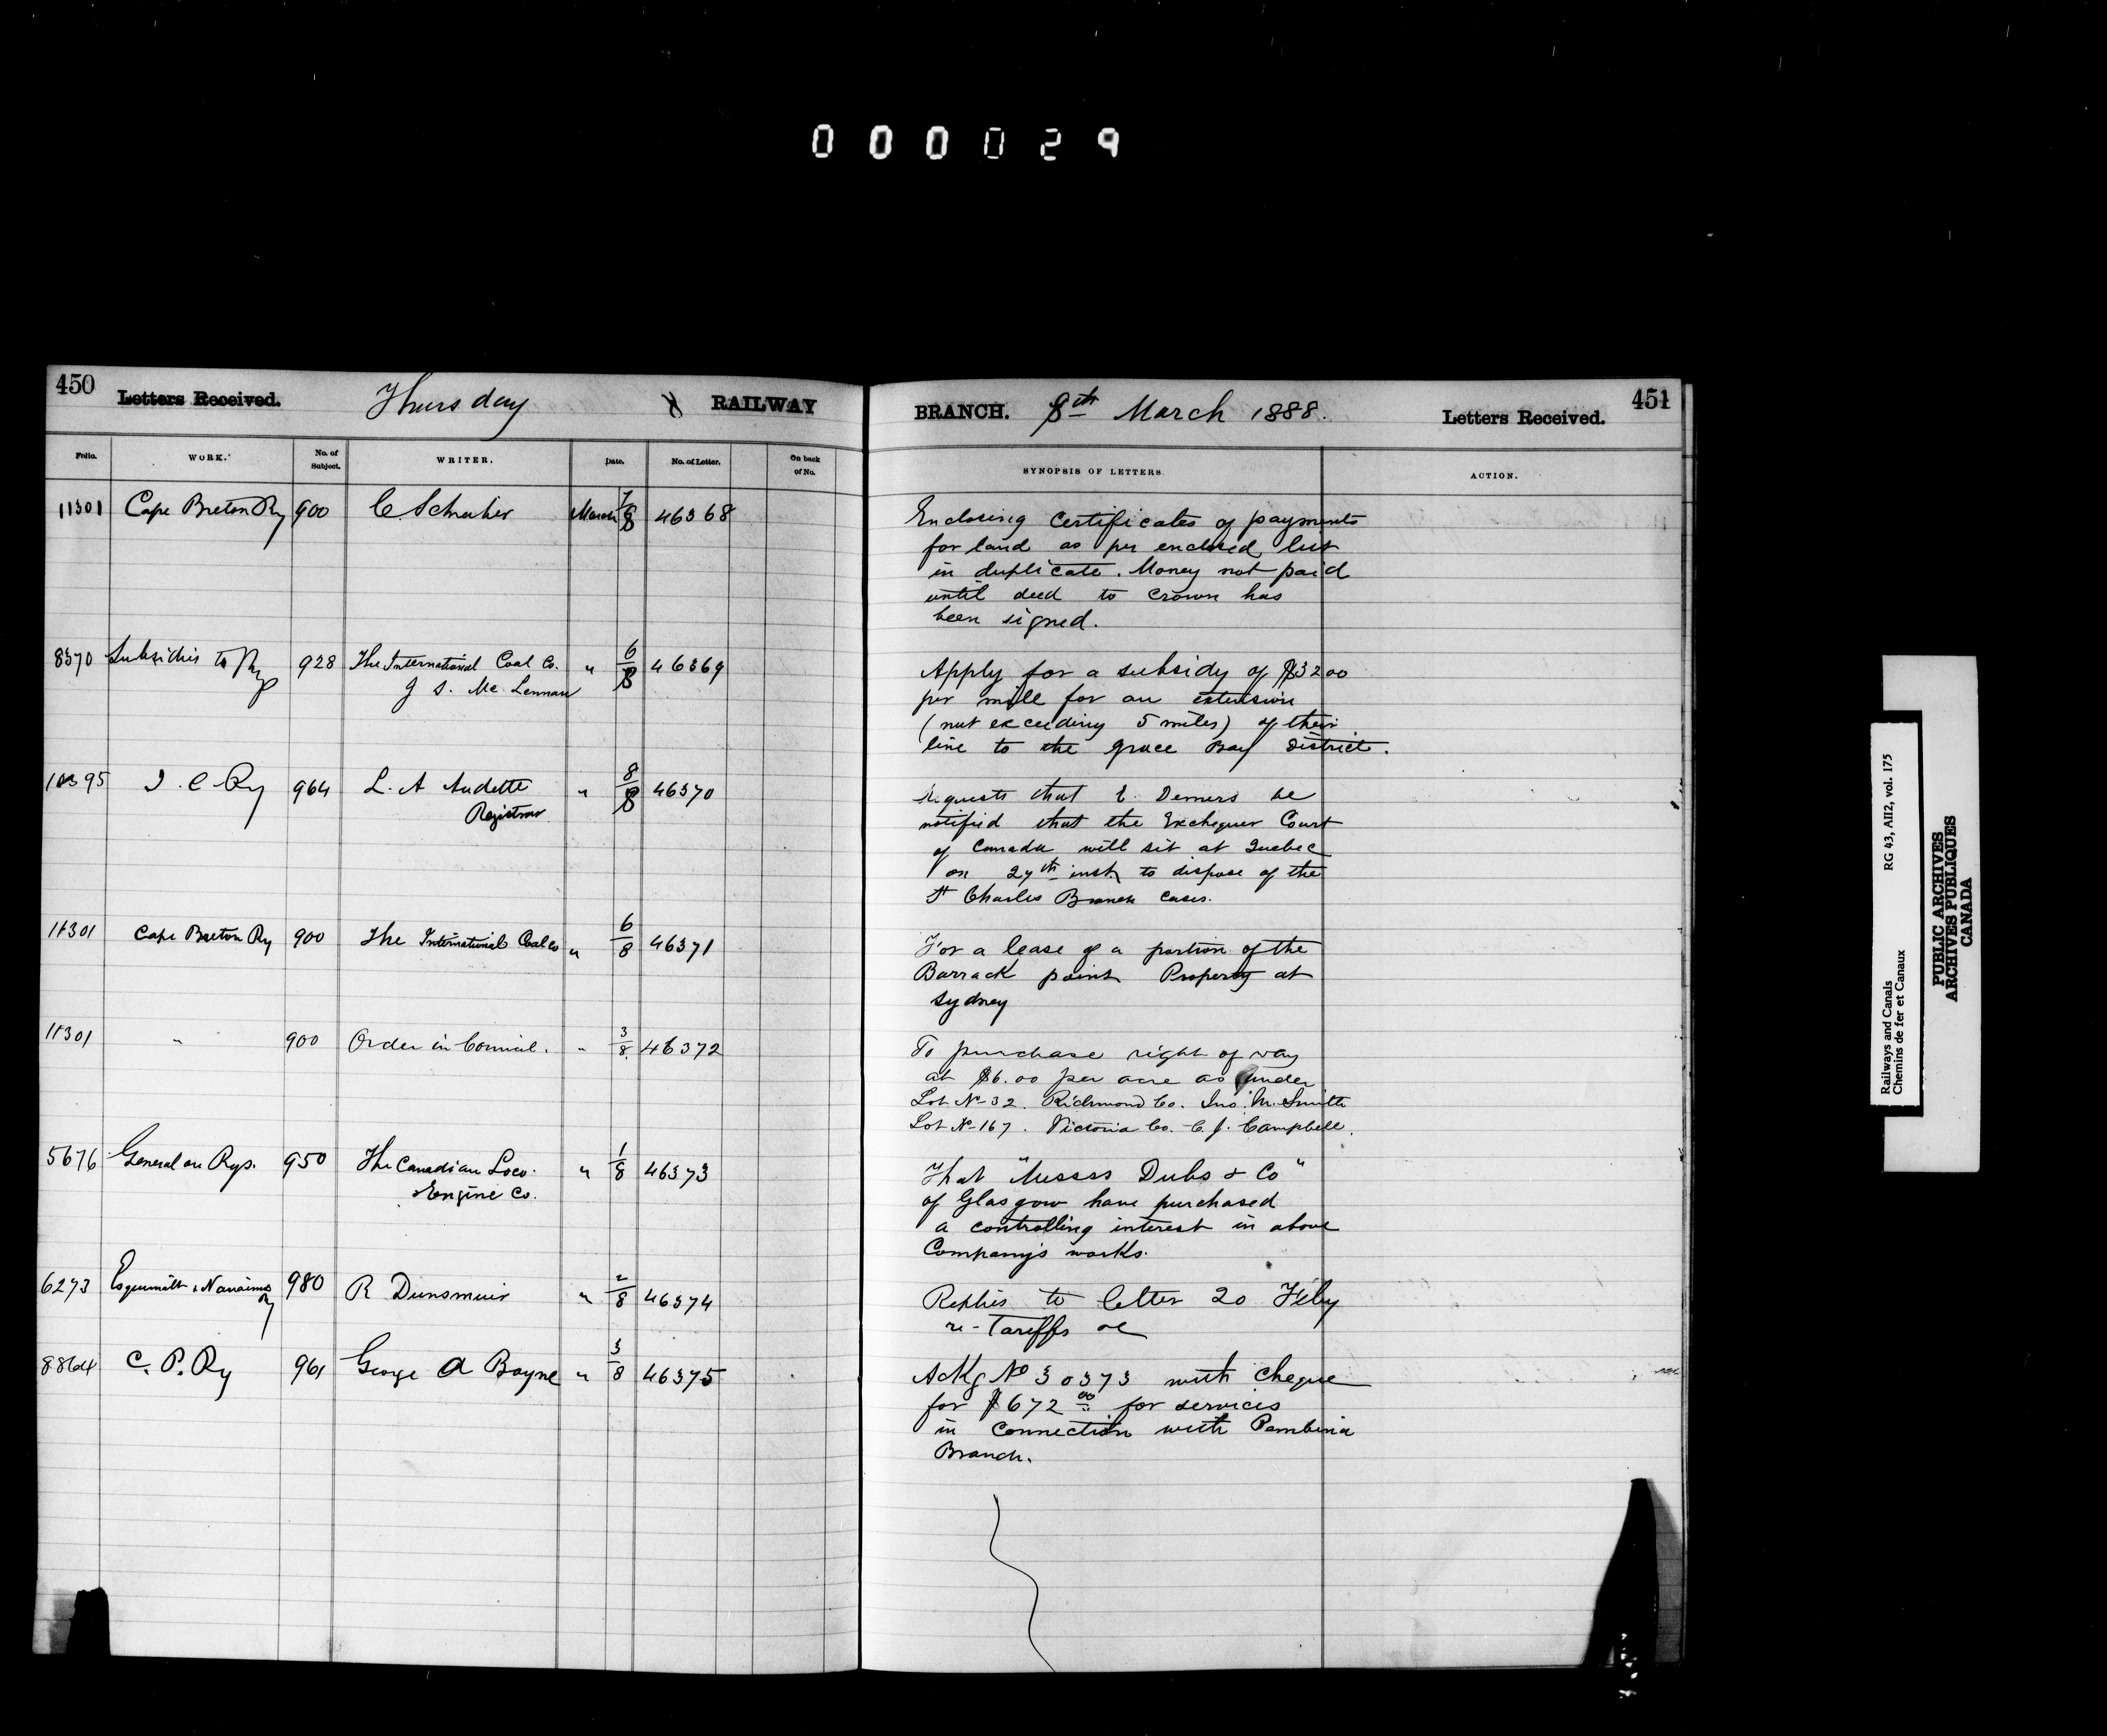 000029
450 Letters Received. Thursday 8 RAILWAY
BRANCH. 8th March 1888. Letters Received. 451
Folio. WORK. No. of Subject. WRITER. Date. No. of Letter. On back of No.
SYNOPSIS OF LETTERS ACTION.
11301 Cape Breton Ry 900 C. Schreiber March 7/8 46368
Enclosing certificates of payments
for land as per enclosed list
in duplicate. Money not paid
until deed to crown has
been signed.
8370 Subsidies to Ry 928 The International Coal Co. " 6/8 46369
J S. Mc Lennan
Apply for a subsidy of $3200
per mile for an extension
(not exceeding 5 miles) of their
line to the Grace Bay District.
I. C Ry 964 L. A Audette " 8/8 46370
Registrar
Requests that E. Demers be
notified that the Exchequer Court
of Canada will sit at Quebec
on 27th inst. to dispose of the
St Charles Branch cases.
11301 Cape Breton Ry 900 The International Coal Co " 6/8 46371
For a lease of a portion of the
Barrack point Property at
Sydney
11301 " 900 Order in Council. " 3/8 46372
To purchase right of way
at $6.00 per acre as under
Lot No 32. Richmond Co. Jno. M. Smith
Lot No 167. Victoria Co. C. J. Campbell.
5676 General on Rys. 950 The Canadian Loco. " 1/8 46373
& Engine Co.
That "Messrs Dubs & Co"
of Glasgow have purchased
a controlling interest in above
Company's works.
6273 Esquimalt & Nanaimo Ry 980 R Dunsmuir " 2/8 46374
Replies to letter 20 Feby
re-Tariffs &c
8864 C. P. Ry 961 George A Bayne " 3/8 46375
Ackg No 30373 with cheque
for $672 00 for services
in connection with Pembina
Branch.
Railways and Canals RG 43, AII2, vol. 175
Chemins de fer et Canaux
PUBLIC ARCHIVES
ARCHIVES PUBLIQUES
CANADA